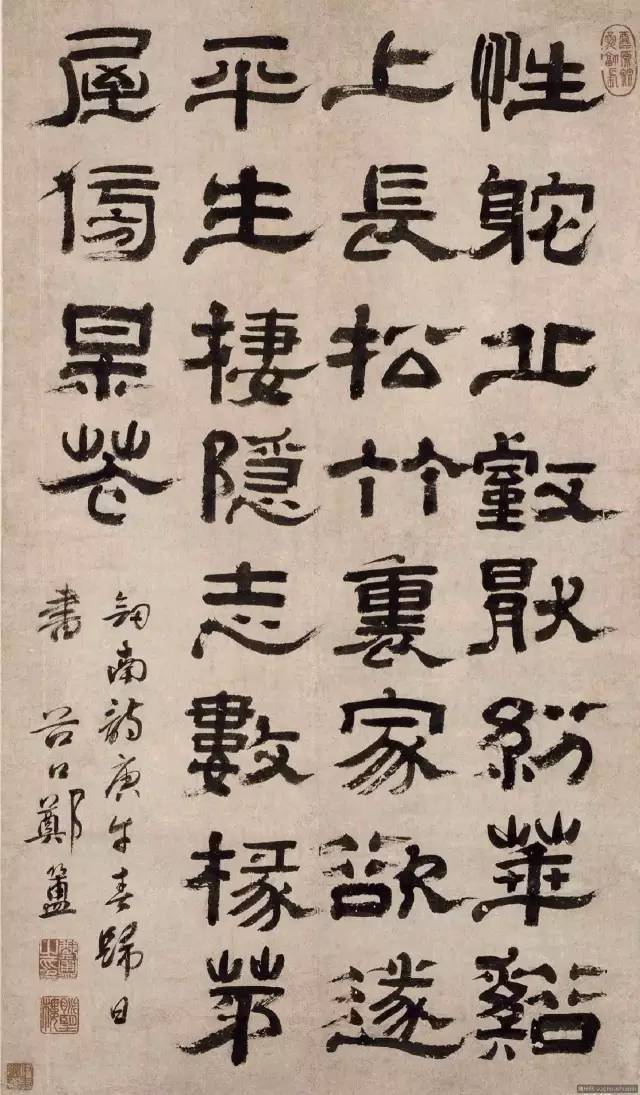 性躭丘壑猒紛華谿
上長松竹裏家欲遂
平生棲隱志數椽茅
屋傍呆花
劒南詩庚午春歸日
書 谷口鄭簠